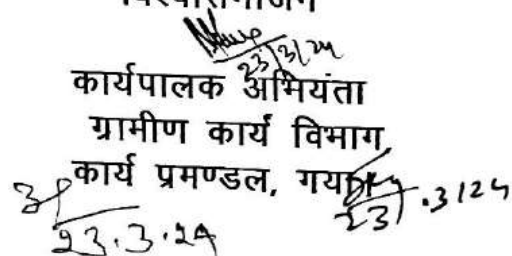 23/3/24
कार्यपालक अभियंता
ग्रामीण कार्य विभाग,
कार्य प्रमण्डल, गया।
23.3.24
23.3.24